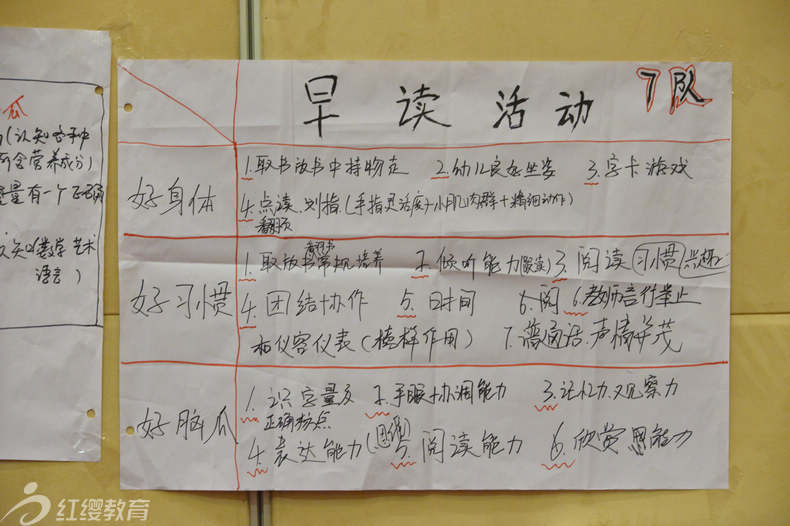 瓜
(认知各种
所含营养成分)
量有一个正确
认知(数学 艺术
语言)
早读活动
7队
好身体
1.取书放书中持物走 2.幼儿良好坐姿 3.字卡游戏
4.点读.划指.(手指灵活度+小肌肉群+精细动作)
翻页
好习惯
翻书
1.取放书常规培养 2.倾听能力(跟读) 3.阅读(习惯)(兴趣)
4.团结协作 5.时间 6.阅 6.教师言行举止
和仪容仪表(榜样作用) 7.普通话.声情并茂
好脑瓜
1.识字量及 2.手眼+协调能力 3.记忆力.观察力
正确指点
4.表达能力(思维) 5.阅读能力 6.欣赏思能力
红缨教育